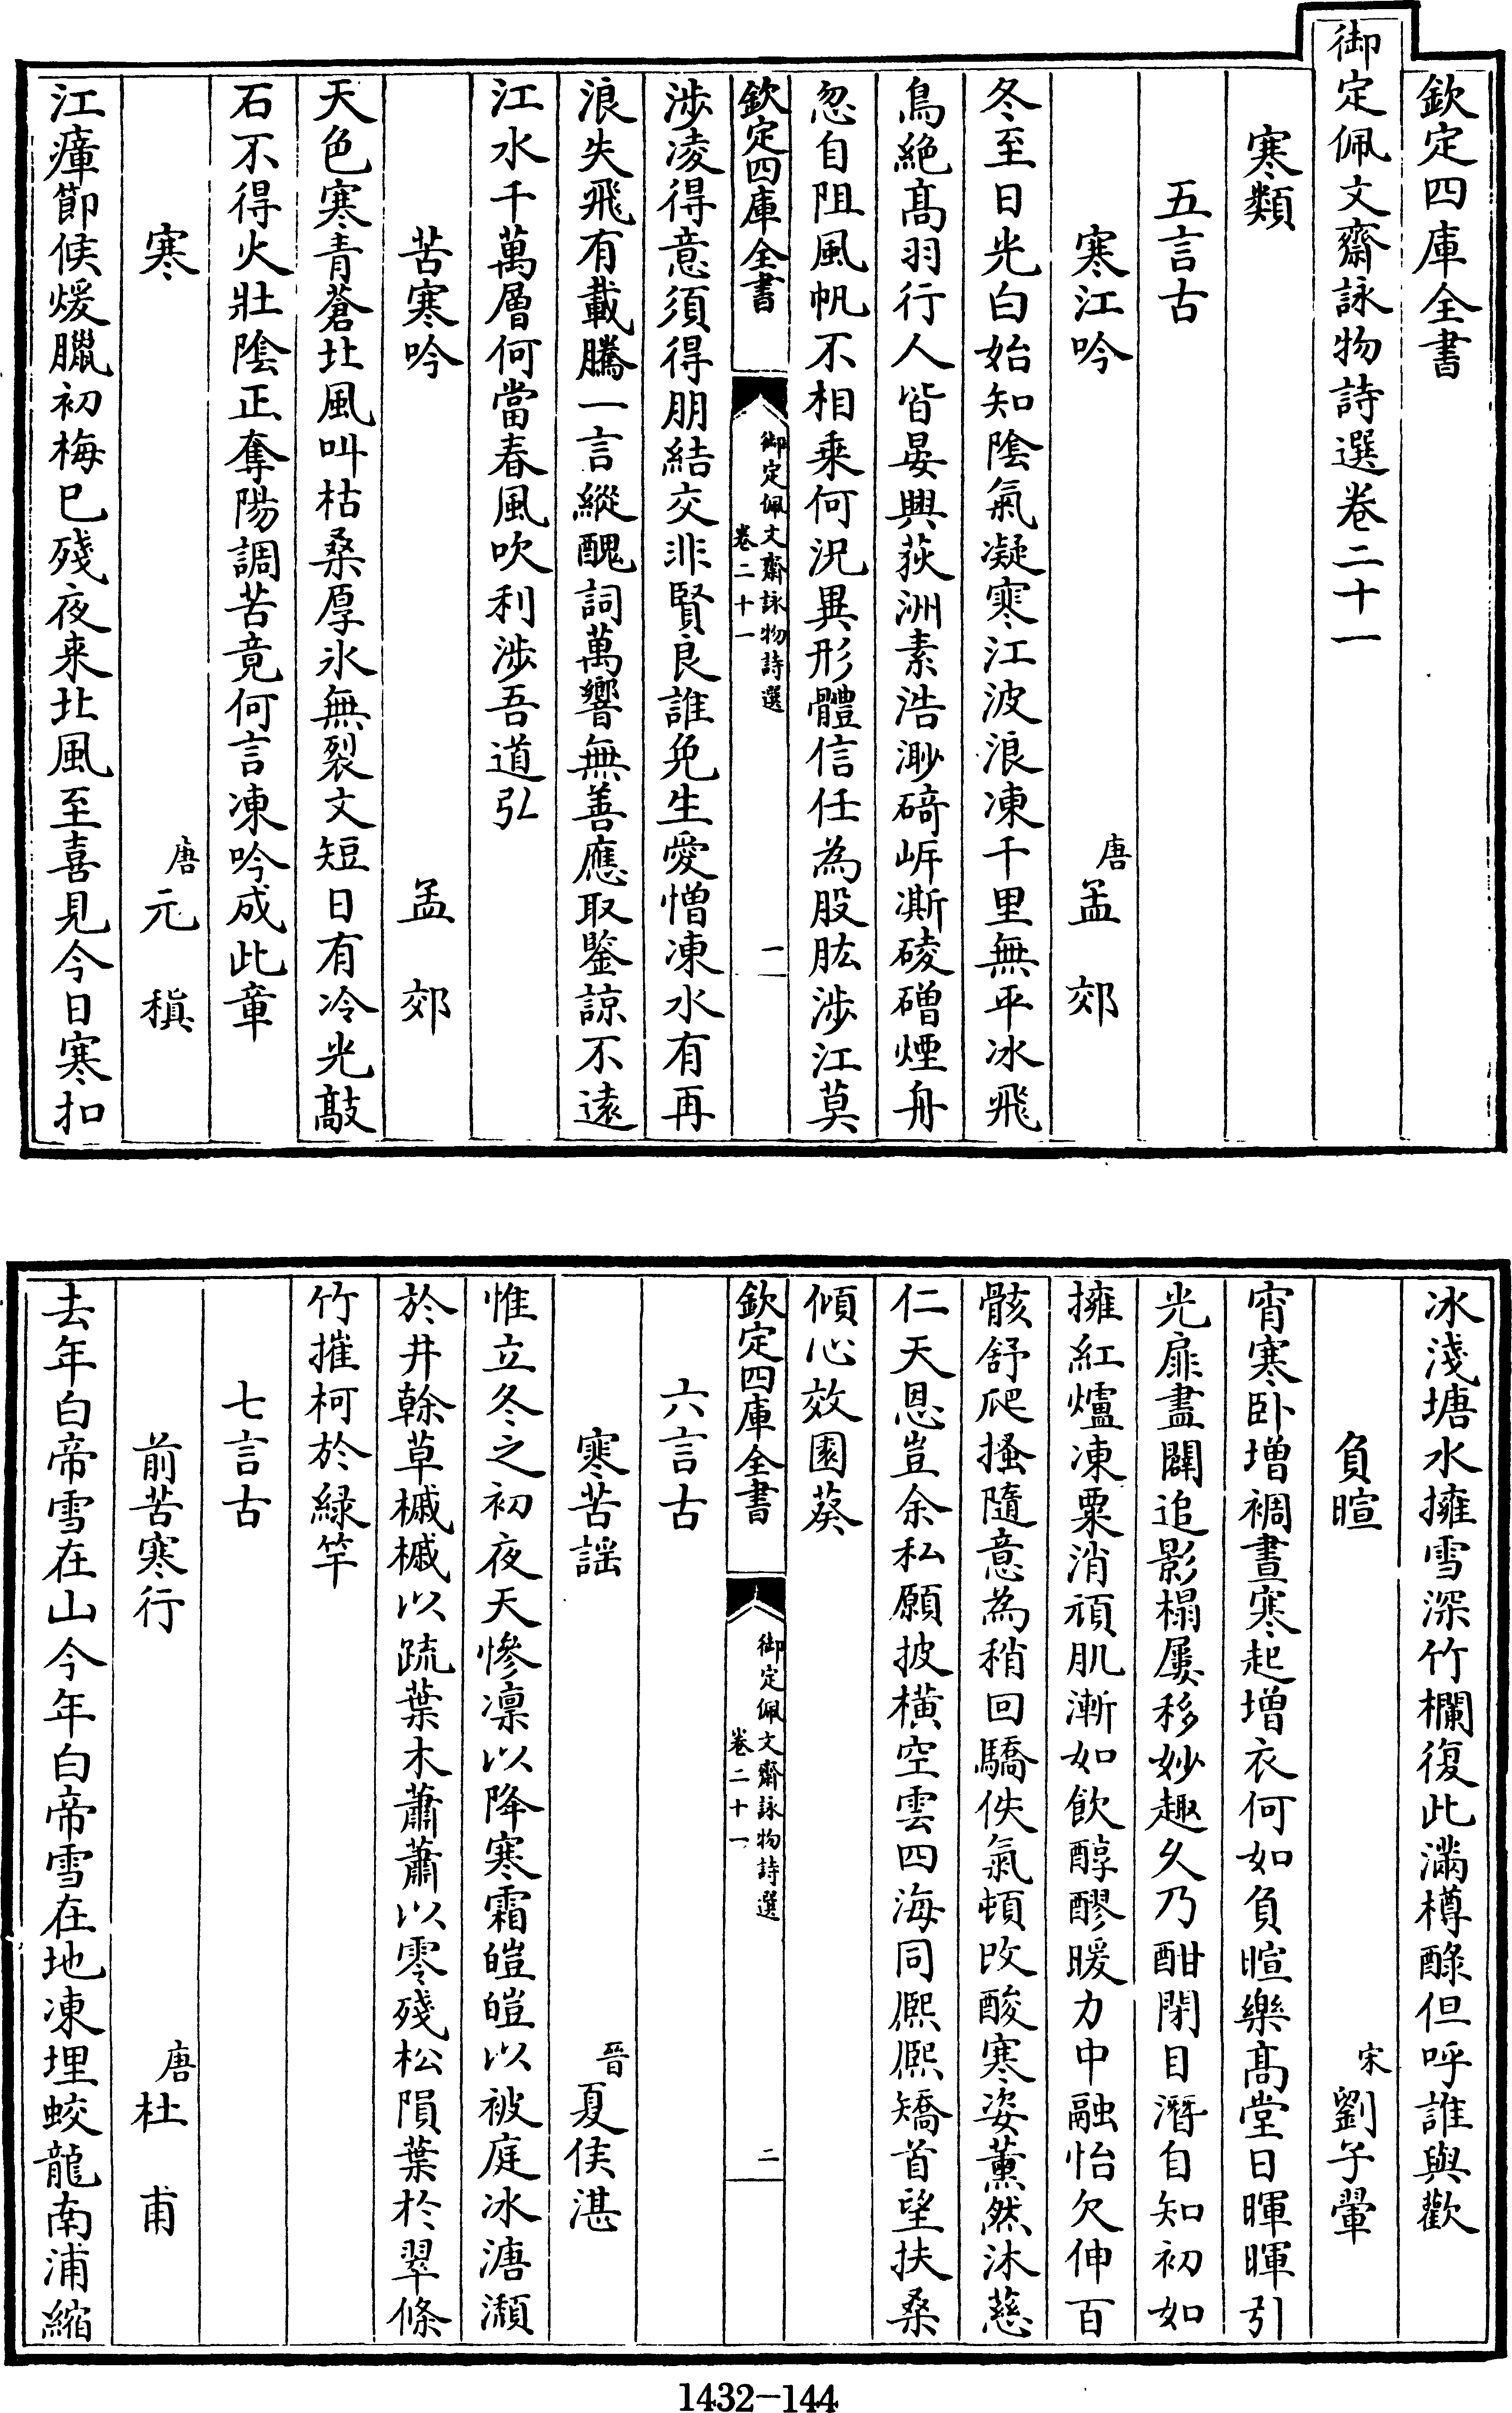 欽定四庫全書
御定佩文齋詠物詩選卷二十一
寒類
五言古
寒江吟 唐 孟郊
冬至日光白始知陰氣凝寒江波浪凍千里無平冰飛
鳥絶髙羽行人皆晏興荻洲素浩渺碕岸澌磳煙舟
忽自阻風帆不相乗何況異形體信任為股肱渉江莫
欽定四庫全書 御定佩文齋詠物詩選 卷二十一 一
渉凌得意須得朋結交非賢良誰免生愛憎凍水有再
浪失飛有載騰一言縱醜詞萬響無善應取鑒諒不逺
江水千萬層何當春風吹利渉吾道弘
苦寒吟 孟郊
天色寒青蒼北風叫枯桑厚氷無裂文短日有冷光敲
石不得火壯隂正奪陽調苦竟何言凍吟成此章
寒 唐 元稹
江瘴節候煖臘初梅已殘夜来北風至喜見今日寒扣
冰淺塘水擁雪深竹欄復此滿樽醁但呼誰與歡
負暄 宋 劉子翬
宵寒卧增裯晝寒起增衣何如負暄樂髙堂日暉暉引
光扉盡闢追影榻屢移妙趣久乃酣閉目潛自知初如
擁紅爐凍粟消頑肌漸如飲醇醪暖力中融怡欠伸百
骸舒爬搔隨意為稍回驕佚氣頓改酸寒姿薰然沐慈
仁天恩豈余私願披橫空雲四海同熈熈矯首望扶桑
傾心效園葵
欽定四庫全書 御定佩文齋詠物詩選 卷二十一 二
六言古
寒苦謡 晉 夏侯湛
惟立冬之初夜天慘凛以降寒霜皚皚以被庭冰溏瀩
於井幹草槭槭以疏葉木蕭蕭以零殘松隕葉於翠條
竹摧柯於緑竿
七言古
前苦寒行 唐 杜甫
去年白帝雪在山今年白帝雪在地凍埋蛟龍南浦縮
1432-144